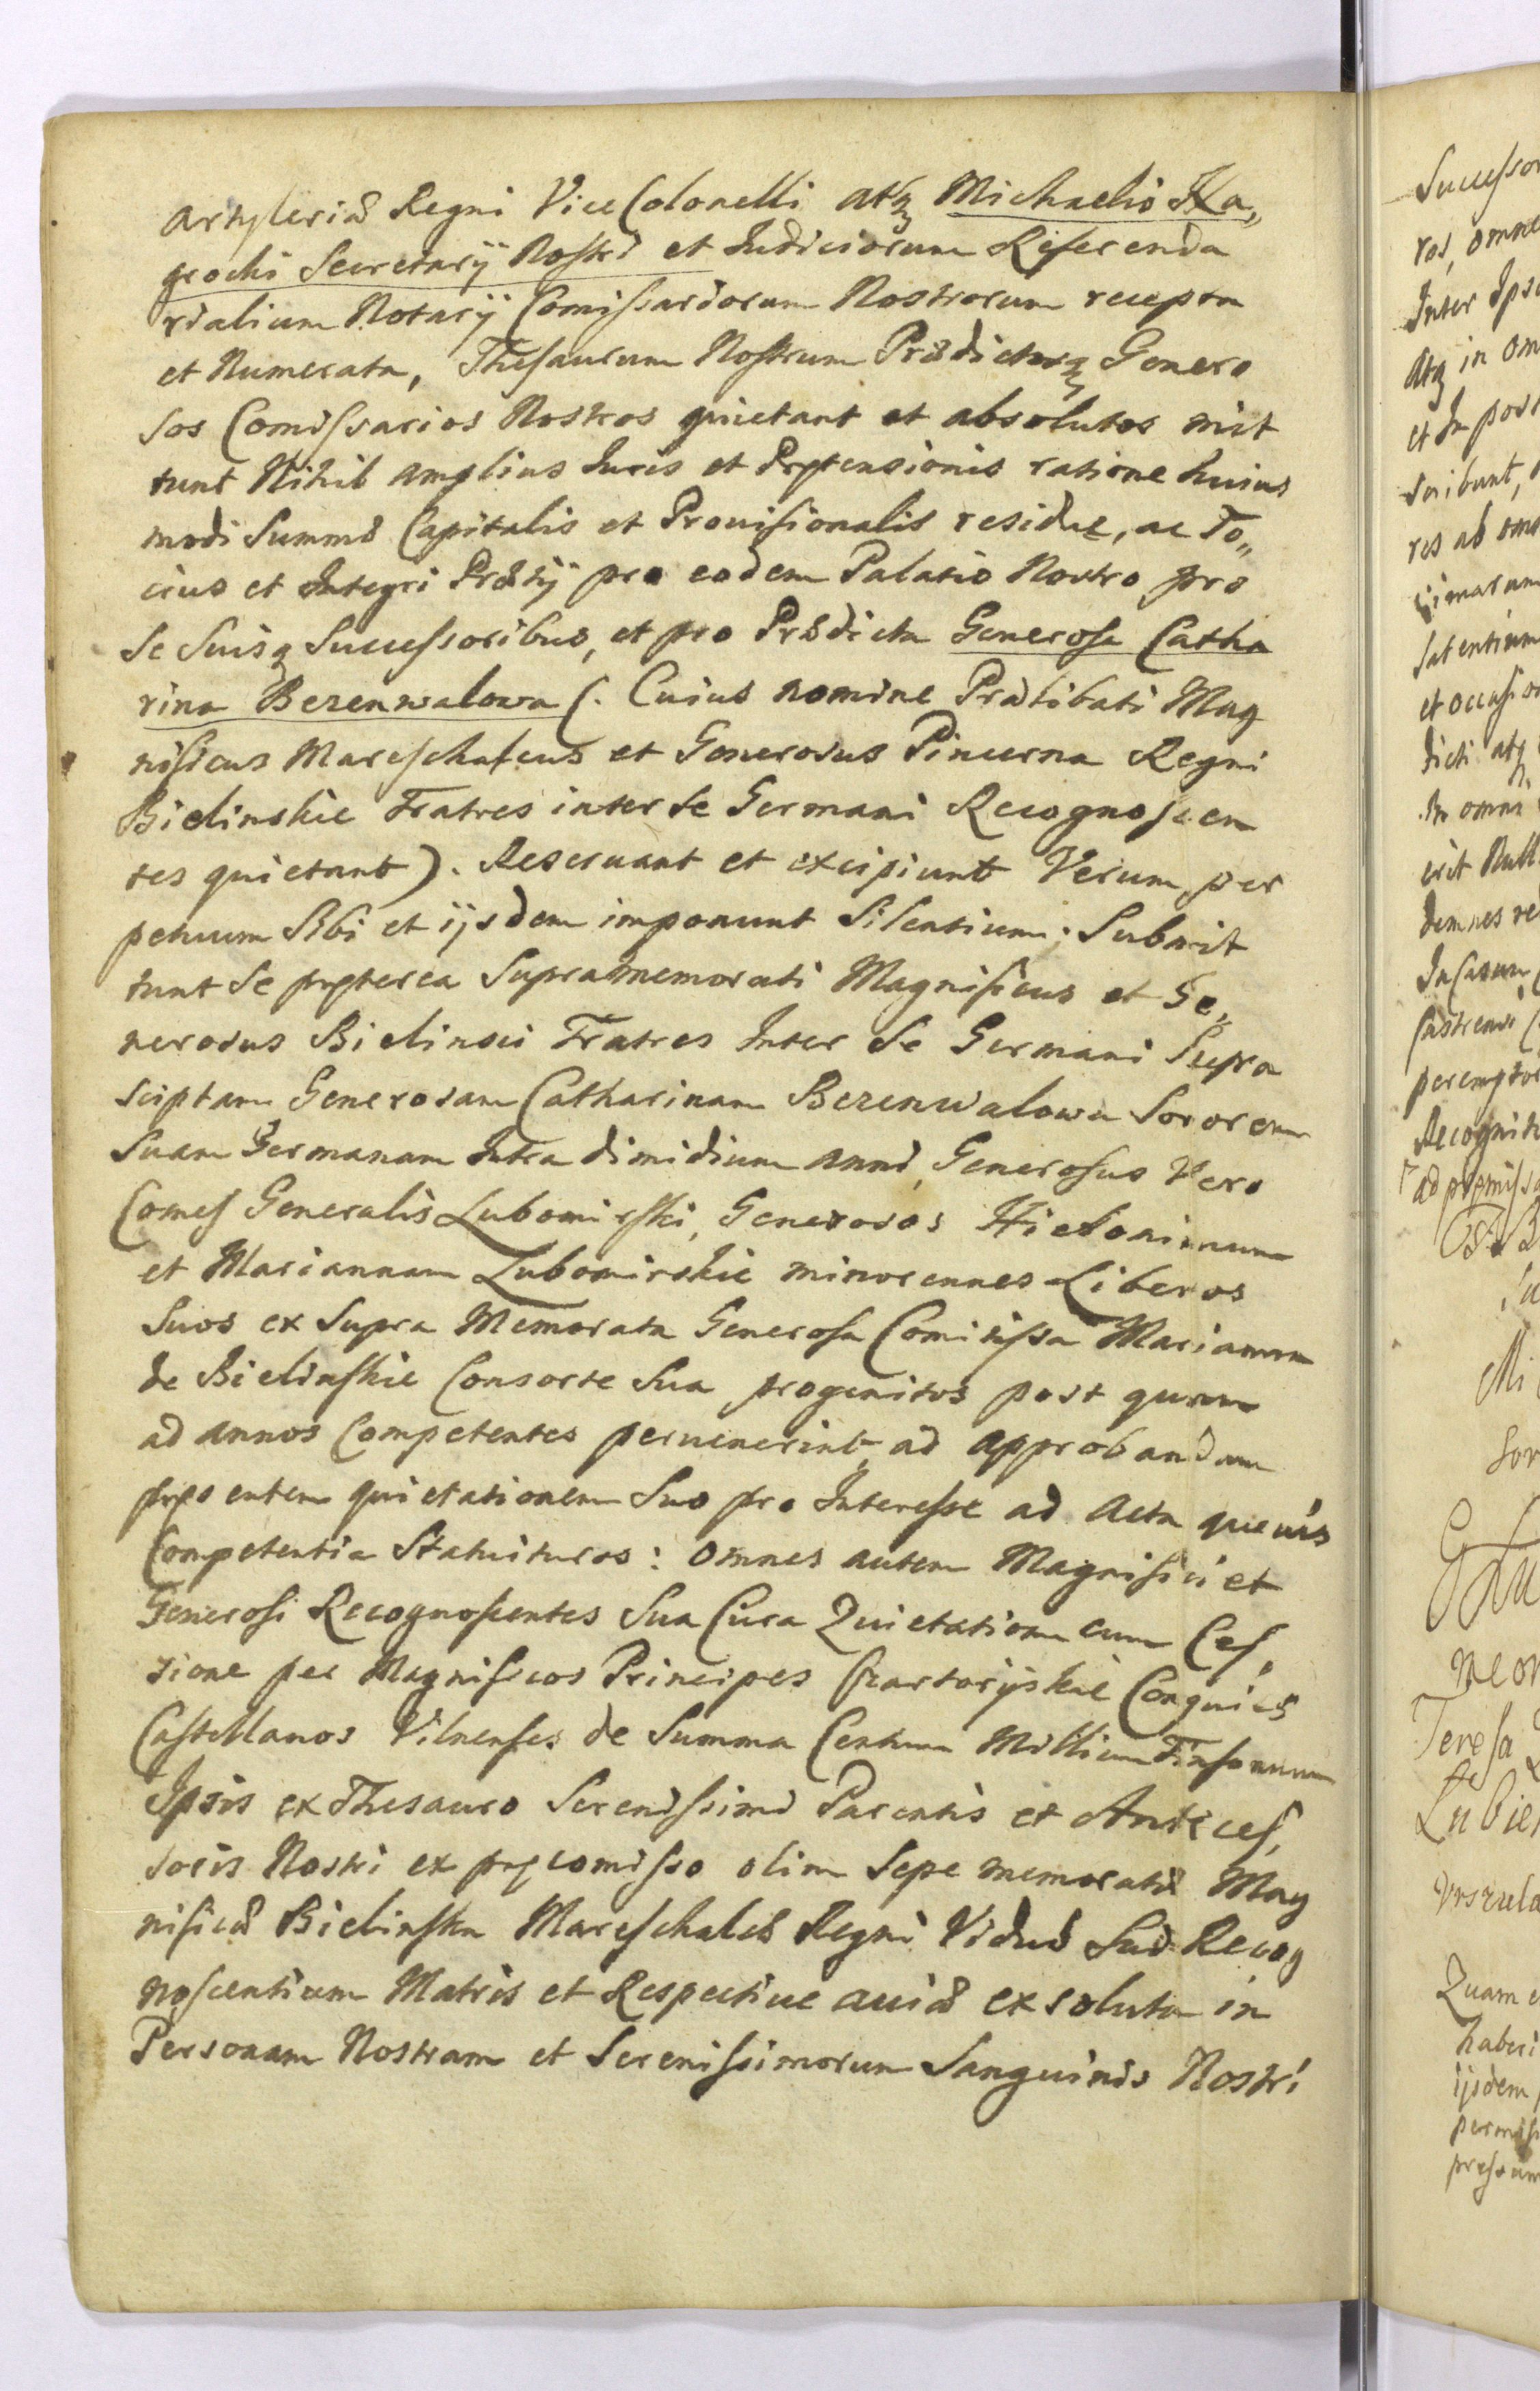 Artyleriæ Regni ViceColonelli Atq Michaelis Ka„
grocki Secretarij Nostri et Iudiciorum Referenda
rialium Notarij Comissariorum Nostrorum recepta
et Numerata, Thesaurum Nostrum Prædictosq Genero
sos Comissarios Nostros quietant et absolutos mit
tunt Nihil amplius Iuris et Prętensionis ratione huius
modi Summæ Capitalis et Prouisionalis residuę, ac To„
cius et Integri Prætij pro eodem Palatio Nostro pro
se Suisq Successoribus, et pro Prædicta Generosa Catha
rina Bezenwalowa (. Cuius nomine Prælibati Mag
nificus Mareschalcus et Generosus Pincerna Regni
Bielinskie Fratres inter se Germani Recognoscen
tes quietant). Reseruant et excipiunt Verum per
petuum Sibi et ijsdem imponunt Silentium; Submit
tunt Se prętterea Supramemorati Magnificus et Ge„
nerosus Bielinsci Fratres Inter Se Germani Supra
sciptam Generosam Catharinam Bezenwalowa Sororem
Suam Germanam Intra dimidium anni, Generosus Vero
Comes Generalis Lubomirski, Generosos Hieronimum
et Mariannam Lubomirskie minorennes Liberos
Suos ex Supra Memorata Generosa Comitissa Marianna
de Bielinskie Consorte Sua progenitos post quam
ad annos Competentes peruenerint ad approbandam
pręsentem quietationem Suo pro Interesse ad Acta quęuis
Competentia Statuituros: Omnes autem Magnifici et
Generosi Recognoscentes Sua Cura Quietationem cum Ces„
sione per Magnificos Principes Czartoryiskie Coniuges
Castellanos Vilnenses de Summa Centum Millium Tinfonum
Ipsis ex Thesauro Serenissimi Parentis et Anteces„
soris Nostri ex pręcomisso olim Sepe memoratæ Mag
nificæ Bielinska Mareschalcæ Regni Viduæ Suæ Recog
noscentium Matris et Respectiue auiæ exsoluta in
Personam Nostram et Serenissimorum Sanguinis Nostri
Successor
ros, omne
Inter Ipso
Atq in om
et In poss
scribunt,
res ab om
fatentium
et occasio
dicti atq
In omni
erit Null
demnes re
In Casum
Castrensi
peremptor
Recognit
ad pręmissa
Mi
Sor
Teresa
Lubie
Vrszula
Quam e
haberi
ijsdem
permis